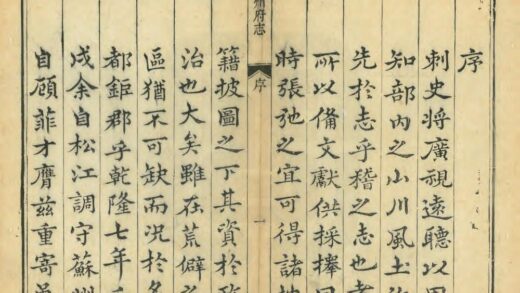 序
刺史将廣視遠聽以周
知部内之山川風土
先於志乎稽之志也
所以備文獻供採擇
時張弛之宜可得諸
州府志
序
一
籍披圖之下其資於
治也大矣雖在荒僻之
區猶不可缺而况於名
都鉅郡乎乾隆七年
戌余自松江調守蘇州
自顧菲才膺兹重寄